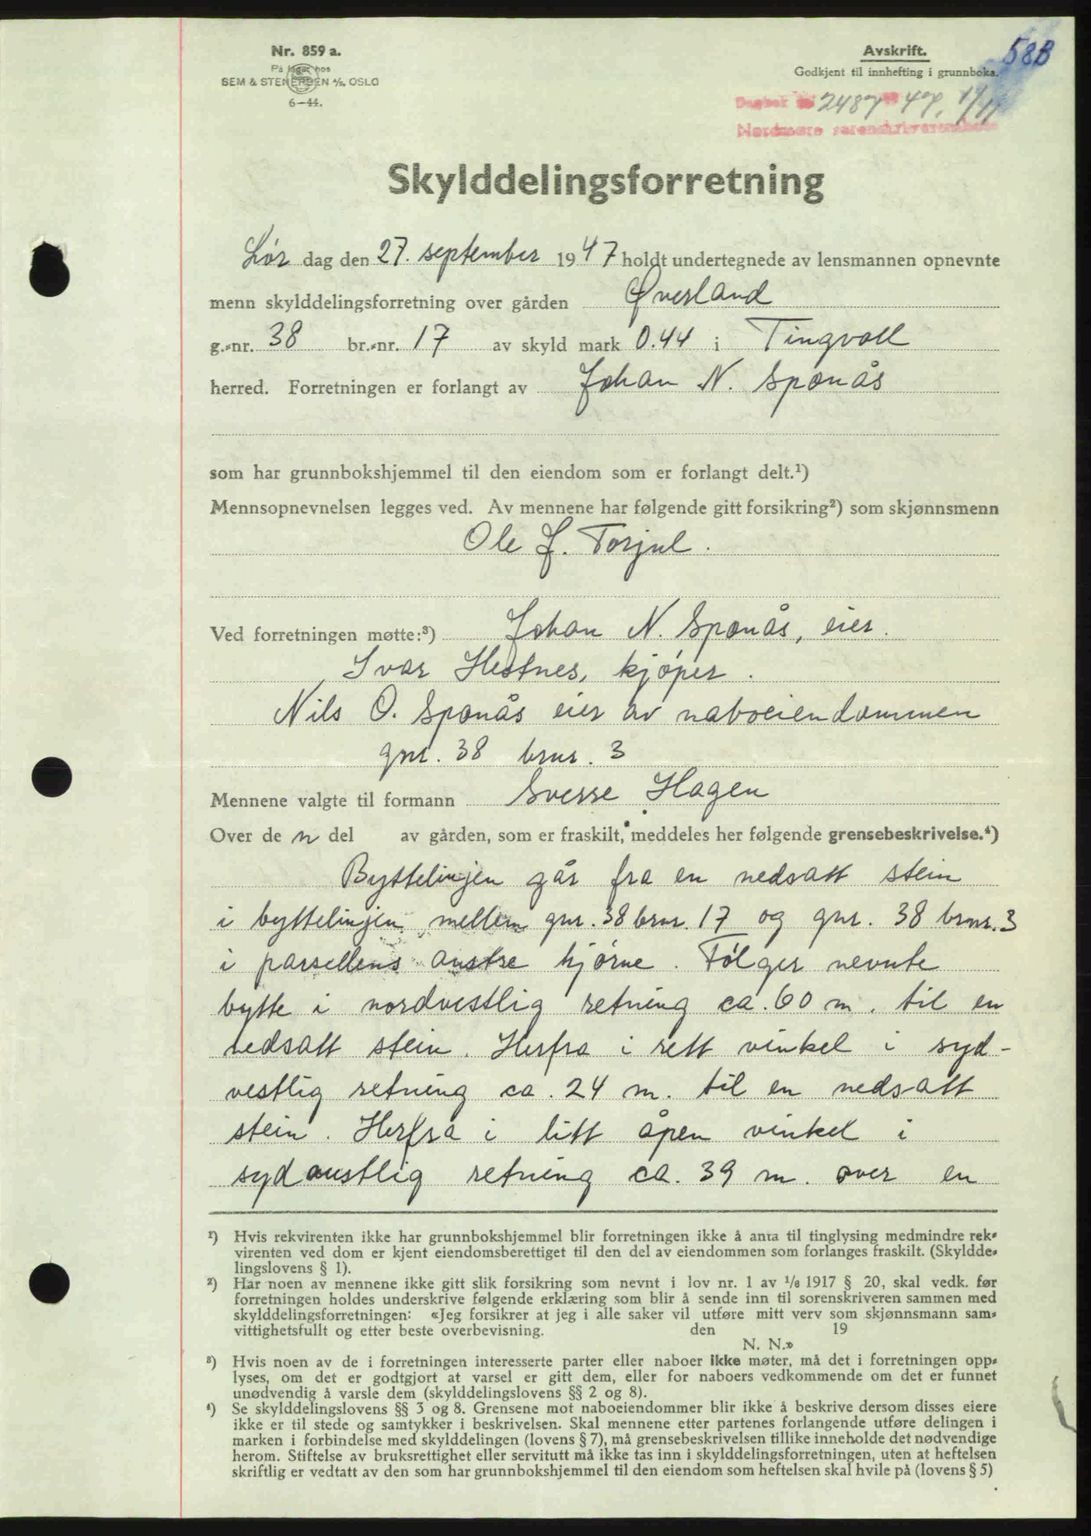 Nr. 859 a.
På lager hos
SEM & STENERSEN A/S, OSLO
6-44.
Avskrift.
Godkjent til innhefting i grunnboka.
58B
Dagbok nr 2487 47. 1/11
Nordmøre sorenskriverembete
Skylddelingsforretning
Lør dag den 27. september 1947 holdt undertegnede av lensmannen opnevnte
menn skylddelingsforretning over gården Øverland
g.-nr. 38 br.-nr. 17 av skyld mark 0.44 i Tingvoll
herred. Forretningen er forlangt av Johan N. Sponås
som har grunnbokshjemmel til den eiendom som er forlangt delt.¹)
Mennsopnevnelsen legges ved. Av mennene har følgende gitt forsikring²) som skjønnsmenn
Ole J. Torjul.
Ved forretningen møtte:³) Johan N. Sponås, eier.
Ivar Hestnes, kjøper.
Nils O. Sponås eier av naboeiendommen
gnr. 38 brnr. 3
Mennene valgte til formann Sverre Hagen
Over de n del av gården, som er fraskilt, meddeles her følgende grensebeskrivelse.⁴)
Byttelinjen går fra en nedsatt stein
i byttelinjen mellem gnr. 38 brnr. 17 og gnr. 38 brnr. 3
i parsellens austre hjørne. Følger nevnte
bytte i nordvestlig retning ca. 60 m. til en
nedsatt stein. Herfra i rett vinkel i syd-
vestlig retning ca. 24 m. til en nedsatt
stein. Herfra i litt åpen vinkel i
sydaustlig retning ca. 39 m. over en
¹) Hvis rekvirenten ikke har grunnbokshjemmel blir forretningen ikke å anta til tinglysing medmindre rek-
virenten ved dom er kjent eiendomsberettiget til den del av eiendommen som forlanges fraskilt. (Skyldde-
lingslovens § 1).
²) Har noen av mennene ikke gitt slik forsikring som nevnt i lov nr. 1 av 1/6 1917 § 20, skal vedk. før
forretningen holdes underskrive følgende erklæring som blir å sende inn til sorenskriveren sammen med
skylddelingsforretningen: «Jeg forsikrer at jeg i alle saker vil utføre mitt verv som skjønnsmann sam-
vittighetsfullt og etter beste overbevisning. den 19
N. N.»
³) Hvis noen av de i forretningen interesserte parter eller naboer ikke møter, må det i forretningen opp-
lyses, om det er godtgjort at varsel er gitt dem, eller for naboers vedkommende om det er funnet
unødvendig å varsle dem (skylddelingslovens §§ 2 og 8).
⁴) Se skylddelingslovens §§ 3 og 8. Grensene mot naboeiendommer blir ikke å beskrive dersom disses eiere
ikke er til stede og samtykker i beskrivelsen. Skal mennene etter partenes forlangende utføre delingen i
marken i forbindelse med skylddelingen (lovens § 7), må grensebeskrivelsen tillike inneholde det nødvendige
herom. Stiftelse av bruksrettighet eller servitutt må ikke tas inn i skylddelingsforretningen, uten at heftelsen
skriftlig er vedtatt av den som har grunnbokshjemmel til den eiendom som heftelsen skal hvile på (lovens § 5)